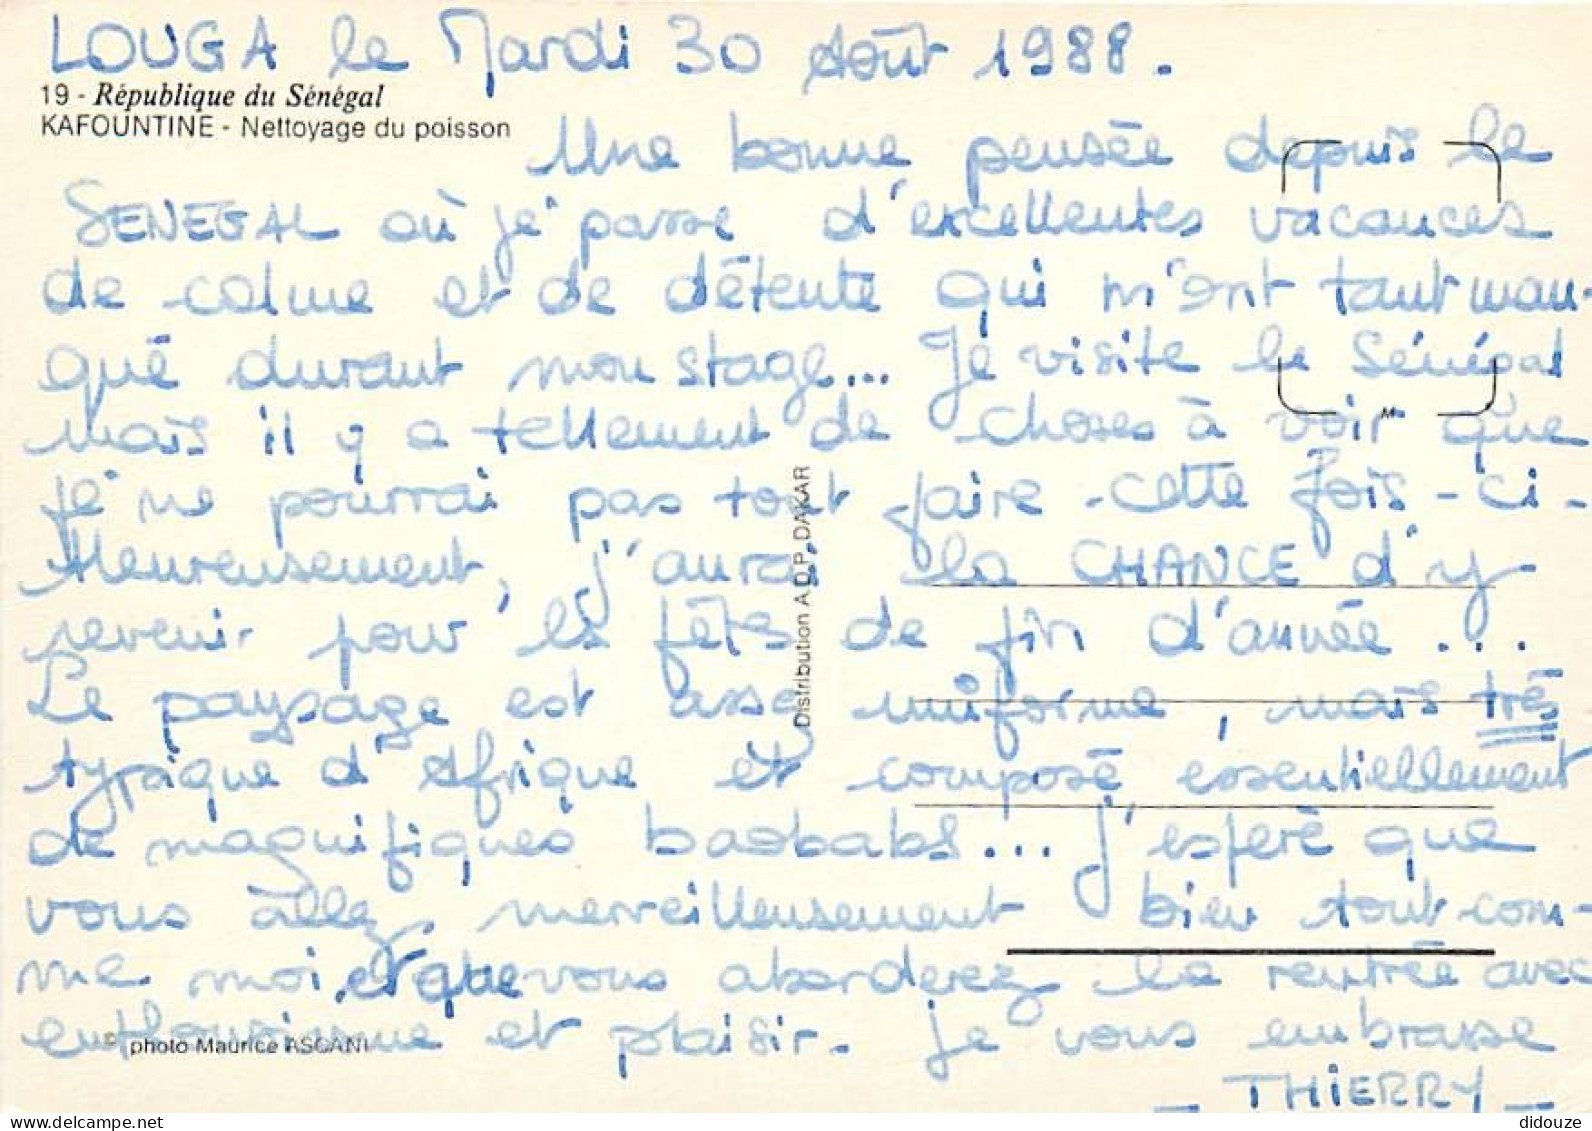 LOUGA le Mardi 30 Août 1988.
19 - République du Sénégal
KAFOUNTINE - Nettoyage du poisson
Une bonne pensée depuis le
SENEGAL où je passe d'excellentes vacances
de calme et de détente qui m'ont tant man-
qué durant mon stage... Je visite le Sénégal
mais il y a tellement de choses à voir que
je ne pourrai pas tout faire cette fois-ci-
Heureusement, j'aurai la CHANCE d'y
revenir pour les fêtes de fin d'année...
Le paysage est assez uniforme, mais très
typique d'Afrique et composé essentiellement
de magnifiques baobabs... J'espère que
vous allez merveilleusement bien tout com-
me moi, et que vous aborderez la rentrée avec
enthousiasme et plaisir. Je vous embrasse
- THIERRY -
Distribution A.D.P. DAKAR
M
© photo Maurice ASCANI
didouze